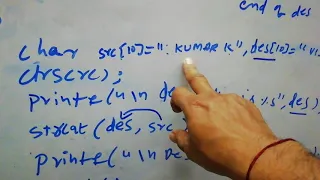 end of des
char src[10]=": KUMAR K", des[10]="VI
clrscr();
printf("\n des is %s", des)
strcat (des, src
printf("\n De